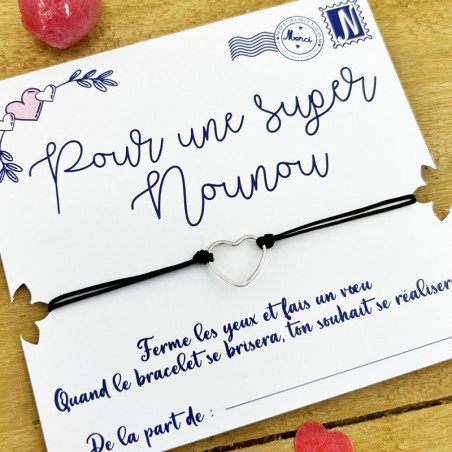 NOSTALGIFT.COM
Merci
N
Pour une super
Nounou
Ferme les yeux et fais un vœu
Quand le bracelet se brisera, ton souhait se réalisera
De la part de :